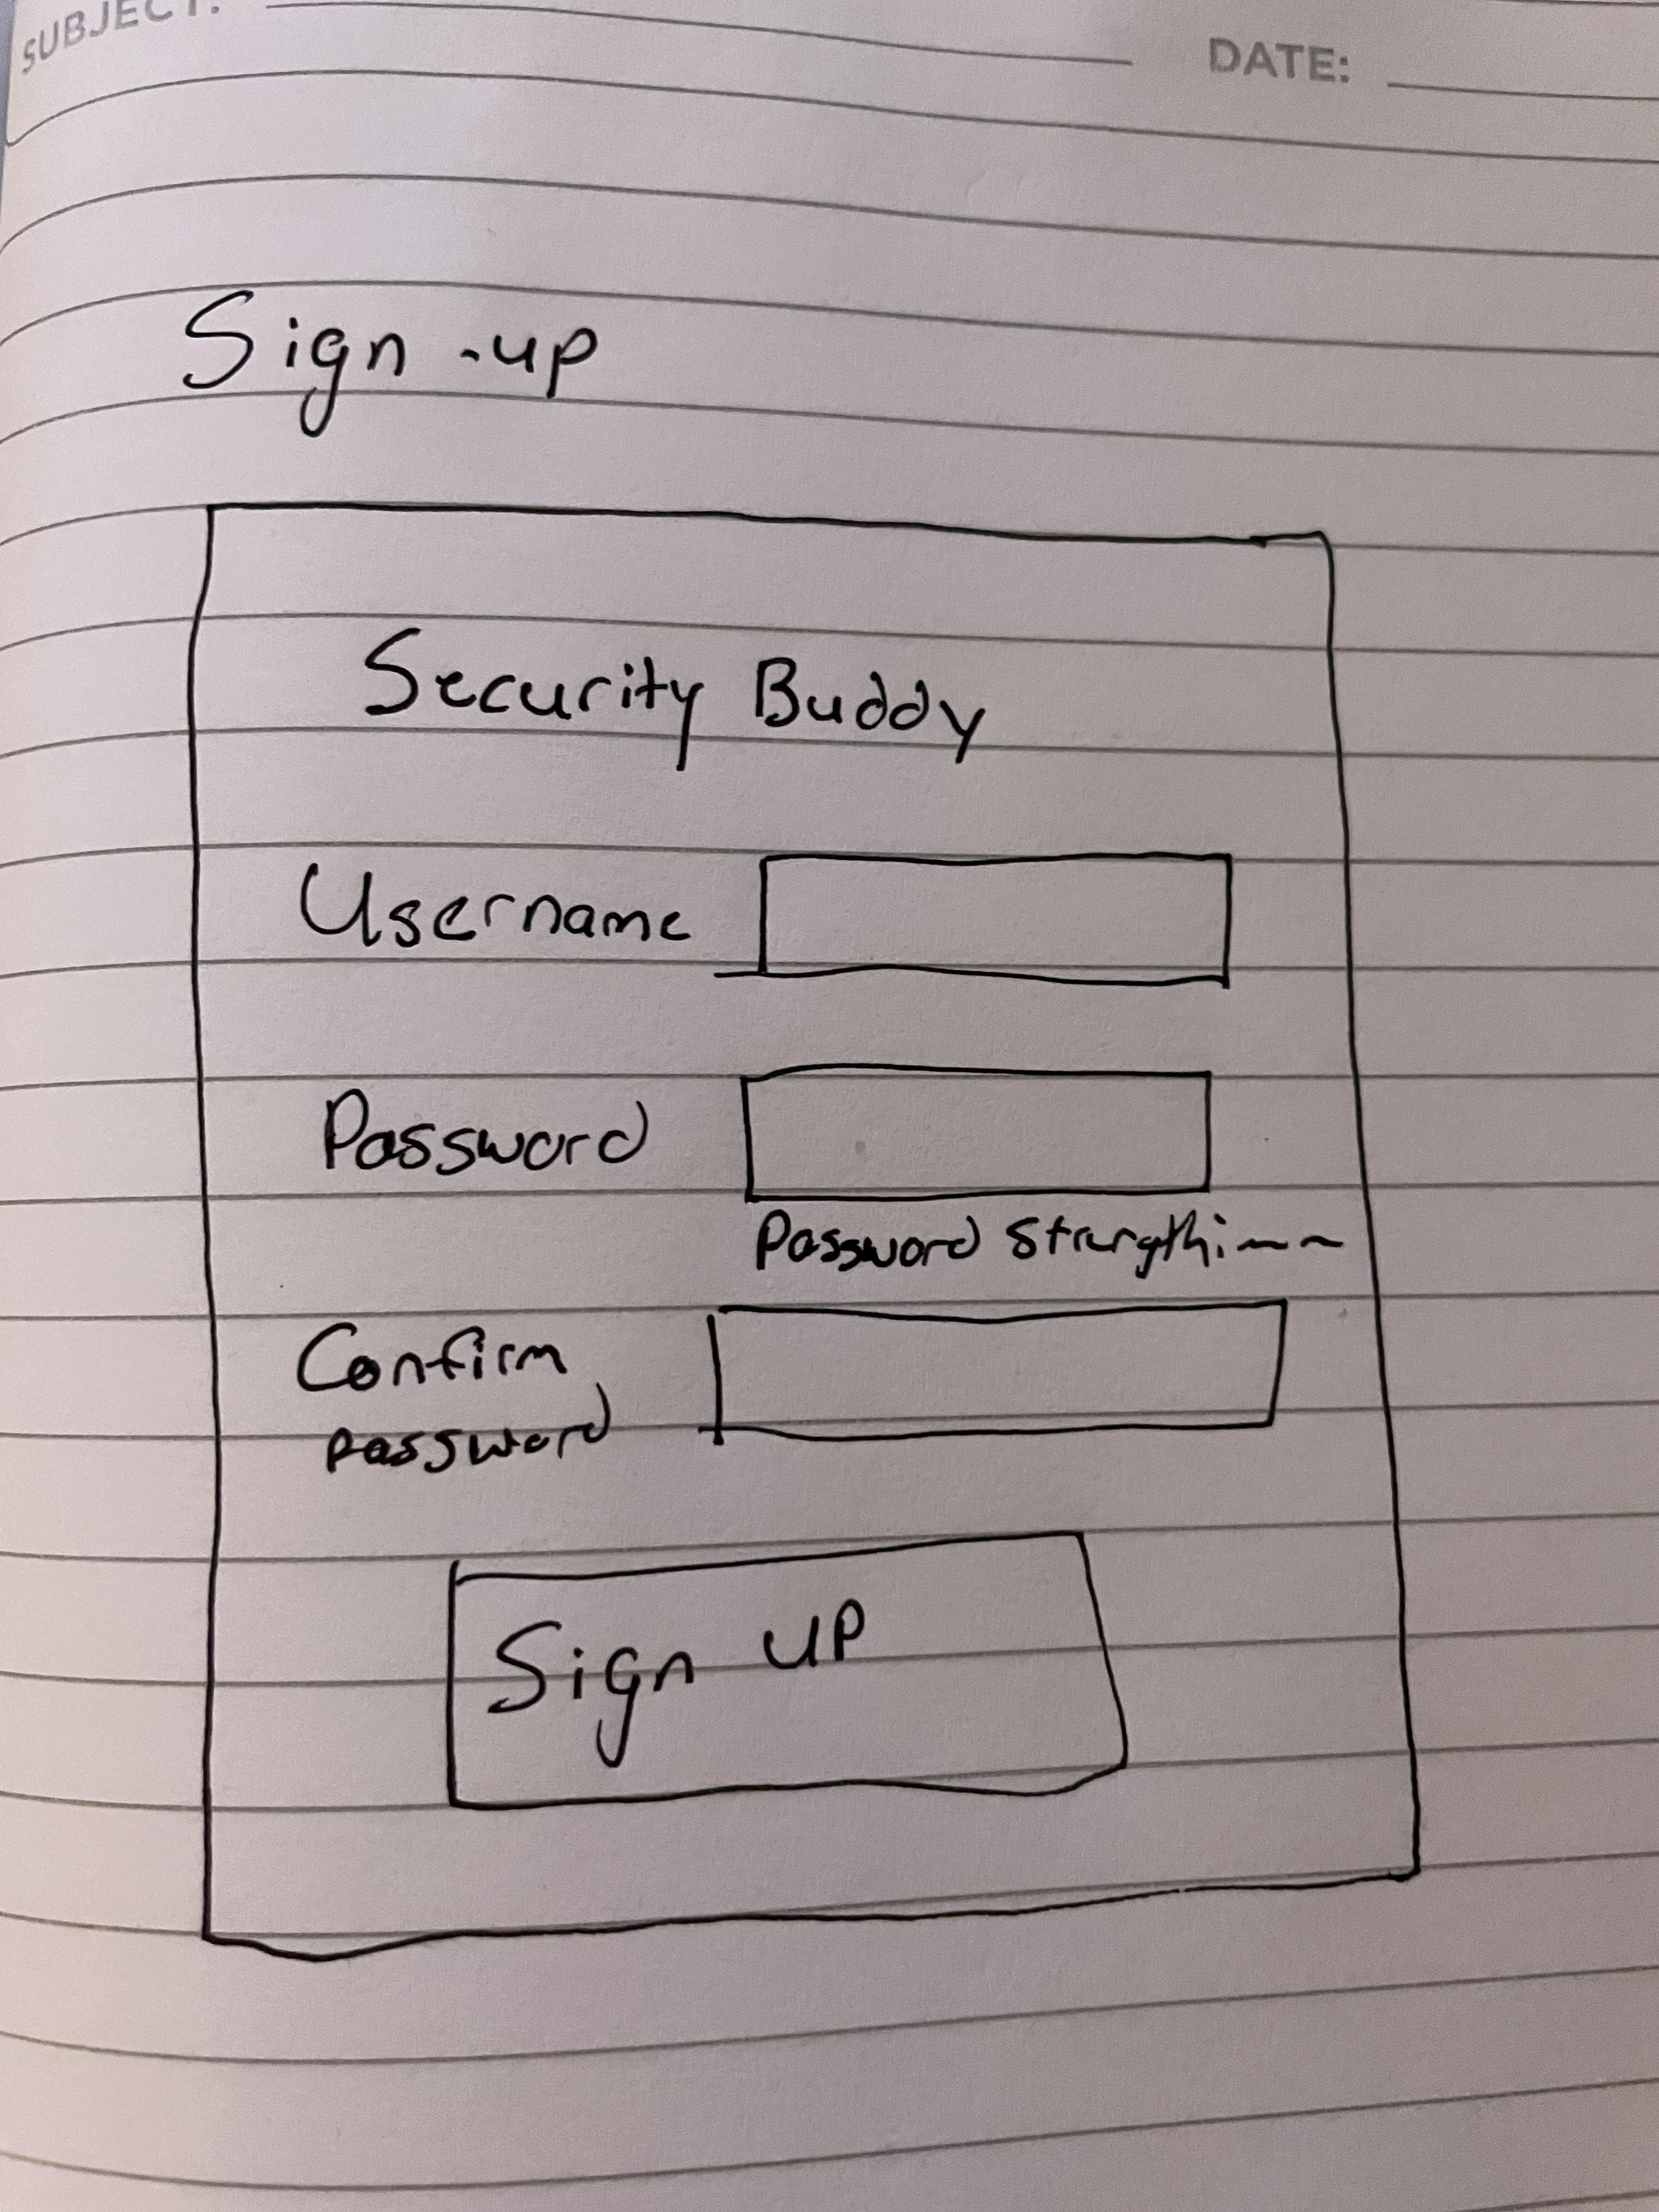 SUBJECT:
DATE:
Sign-up
Security Buddy
Username
Password
Password Strength:
Confirm
password
Sign UP